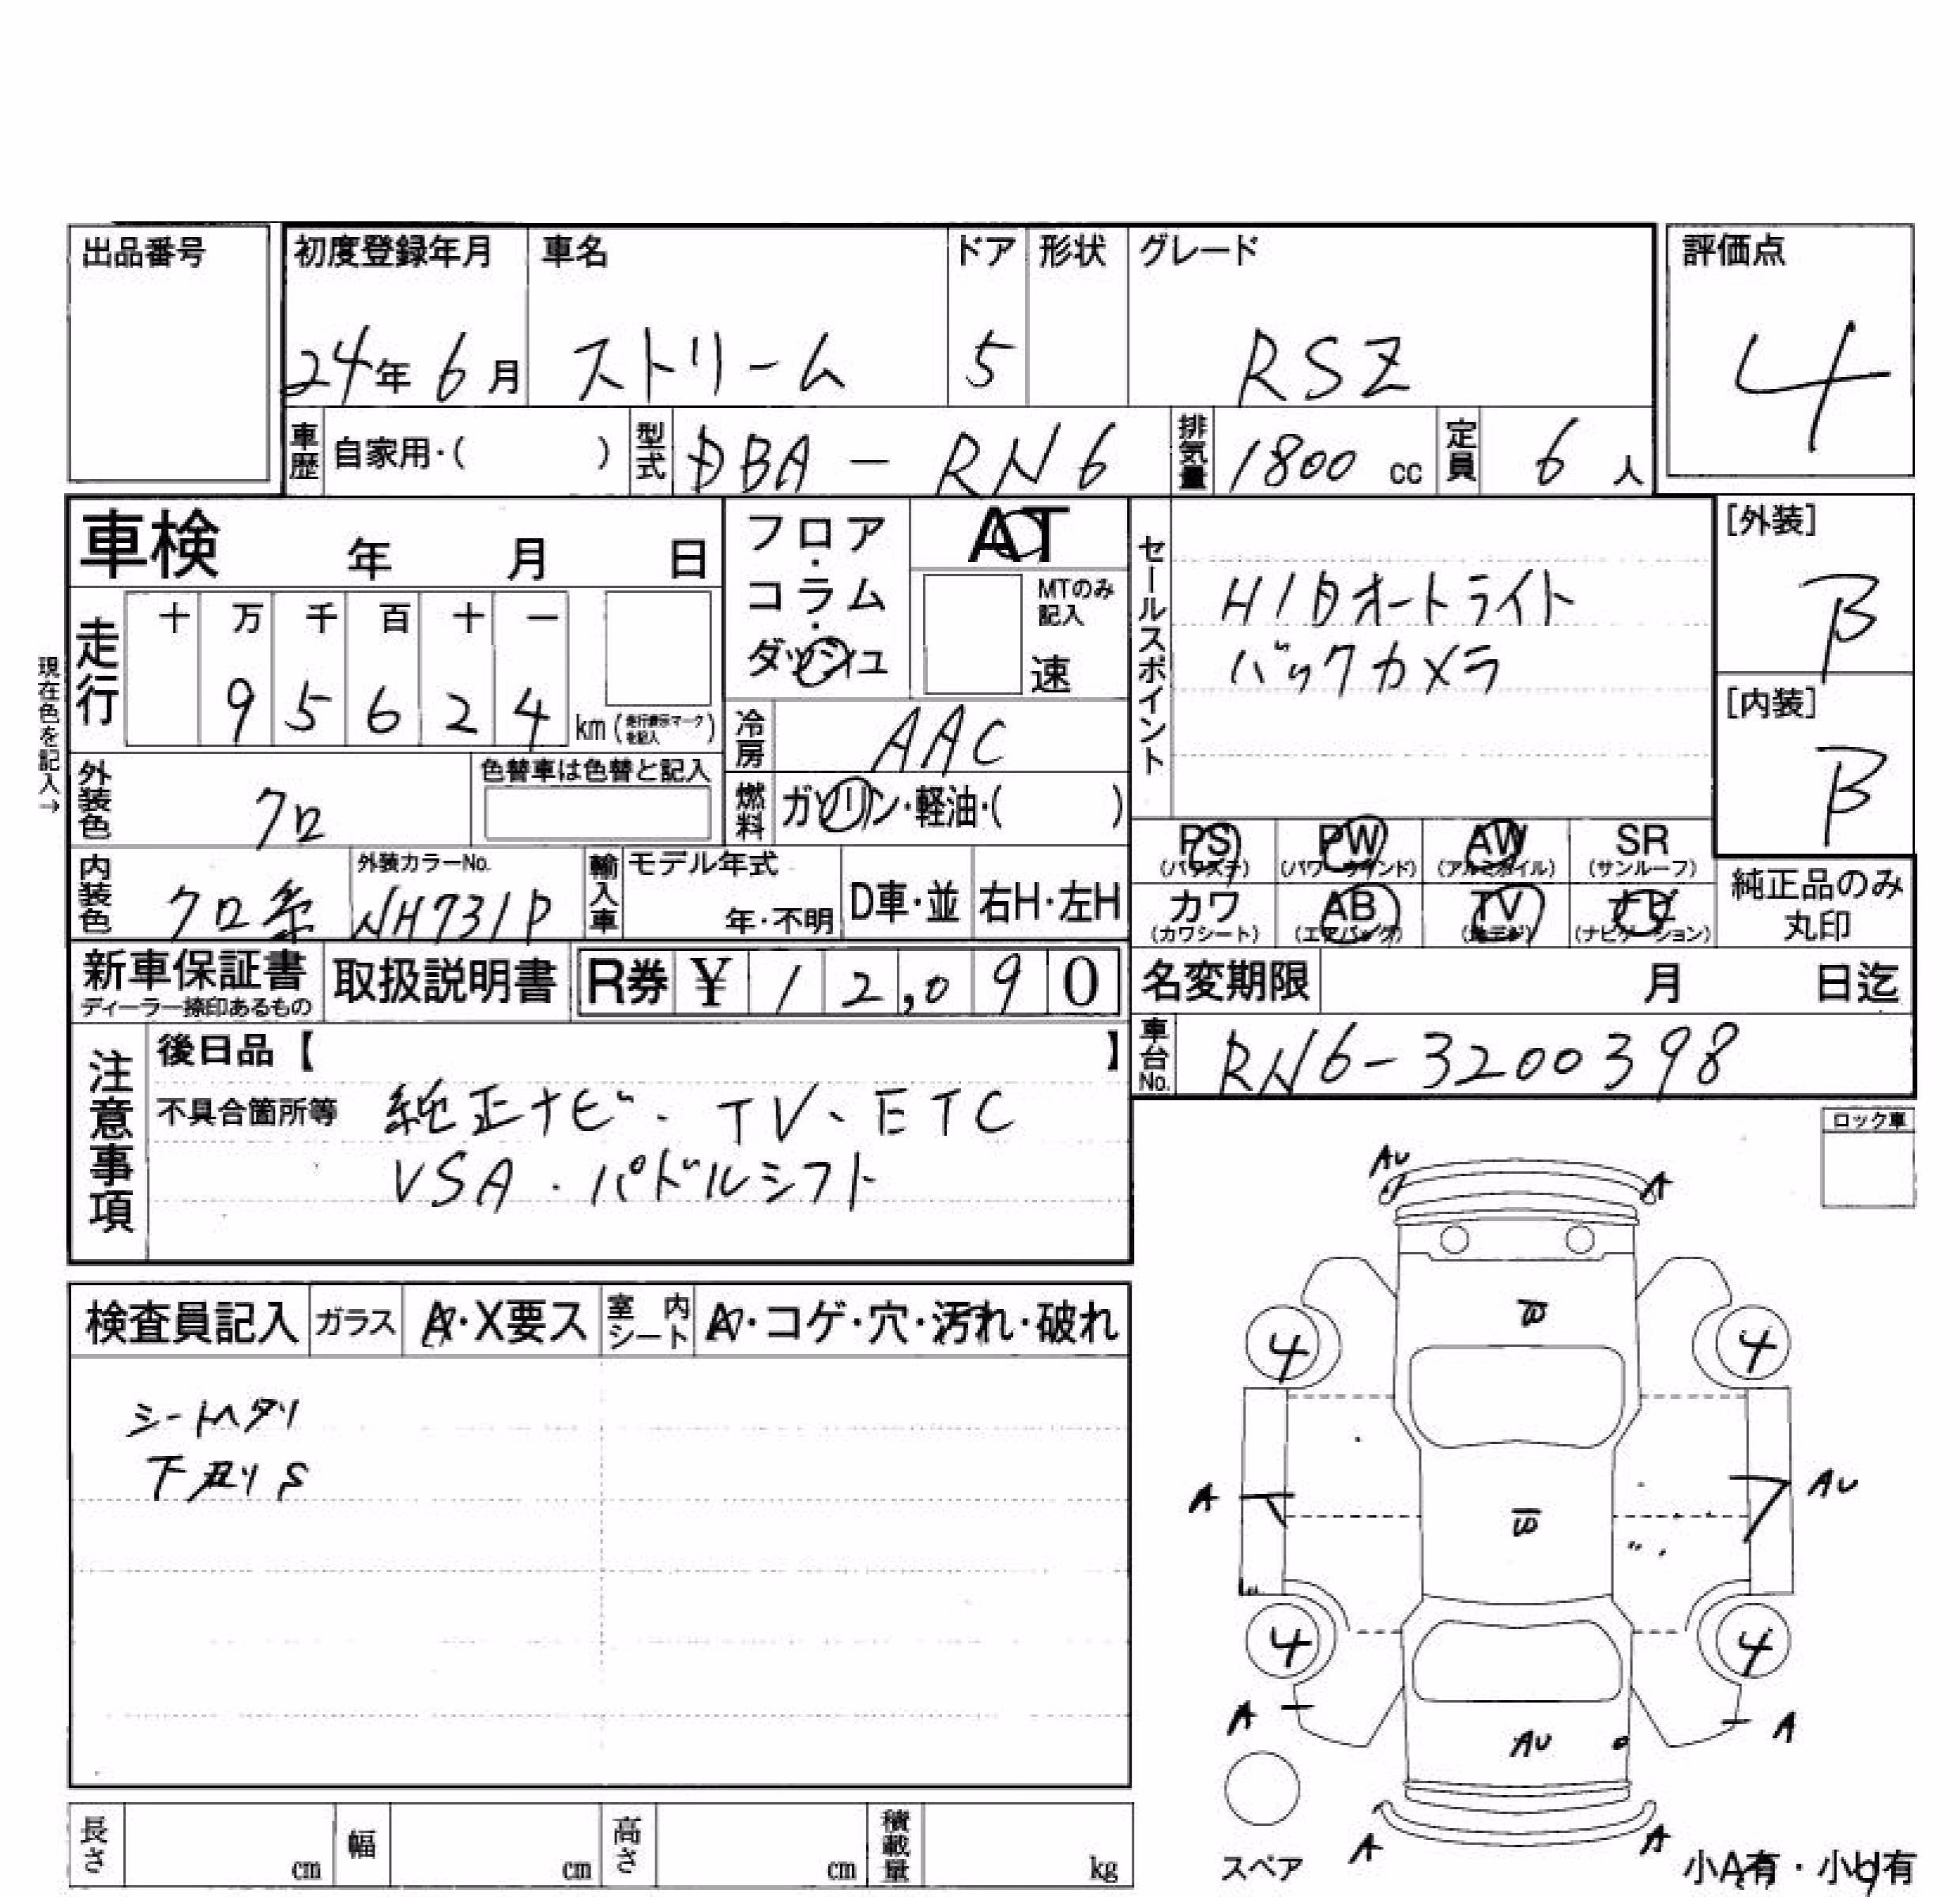 出品番号
初度登録年月 車名 ドア 形状 グレード 評価点
24年 6月 ストリーム 5 RSZ 4
車歴 自家用・( ) 型式 DBA-RN6 排気量 1800 cc 定員 6 人
車検 年 月 日
フロア・コラム・ダッシュ
AT
MTのみ記入
速
セールスポイント
HIDオートライト
バックカメラ
[外装]
B
[内装]
B
現在色を記入→
走行 十 万 千 百 十 一
9 5 6 2 4 km (走行表示マークを記入)
冷房 AAC
外装色 クロ 色替車は色替と記入
燃料 ガソリン・軽油・( )
PS (パワステ) PW (パワーウインド) AW (アルミホイル) SR (サンルーフ)
カワ (カワシート) AB (エアバッグ) TV (地デジ) ナビ (ナビゲーション)
純正品のみ丸印
内装色 クロ系 外装カラーNo. NH731P 輸入車 モデル年式 年・不明 D車・並 右H・左H
新車保証書 ディーラー捺印あるもの 取扱説明書 R券 ¥ 12,090
名変期限 月 日迄
車台No. RN6-3200398
注意事項
後日品【 】
不具合箇所等 純正ナビ・TV・ETC
VSA・パドルシフト
ロック車
検査員記入 ガラス A・X要ス 室内シート A・コゲ・穴・汚れ・破れ
シートヘタリ
下廻りS
AU A
B
4 4
A AU
B
4 4
A A
AU
A A
スペア
小A有・小U有
長さ cm 幅 cm 高さ cm 積載量 kg